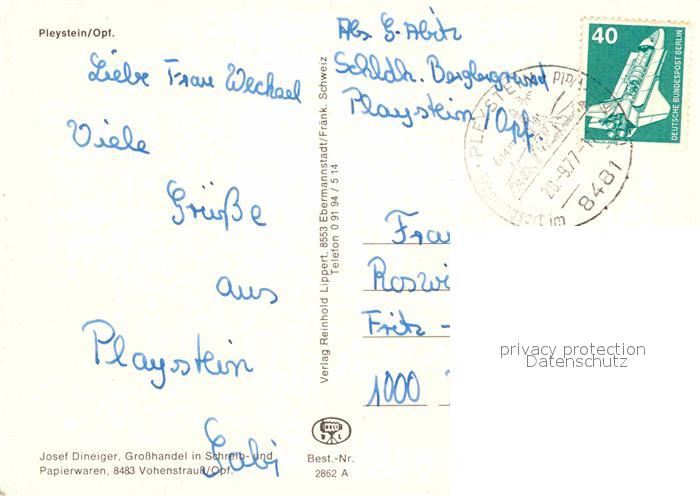 Pleystein/Opf.
Liebe Frau Wechsel
Viele
Grüße
aus
Playstein
Gabi
Josef Dineiger, Großhandel in Schreib- und
Papierwaren, 8483 Vohenstrauß/Opf.
Best.-Nr.
2862 A
Verlag Reinhold Lippert, 8553 Ebermannstadt/Fränk. Schweiz
Telefon 0 91 94 / 5 14
Abs G. Abitz
Schldh.
Playstein/Opf.
40
DEUTSCHE BUNDESPOST BERLIN
PLEYSTEIN
20.-9.77
8481
Frau
Roswi
Fritz -
1000
privacy protection
Datenschutz